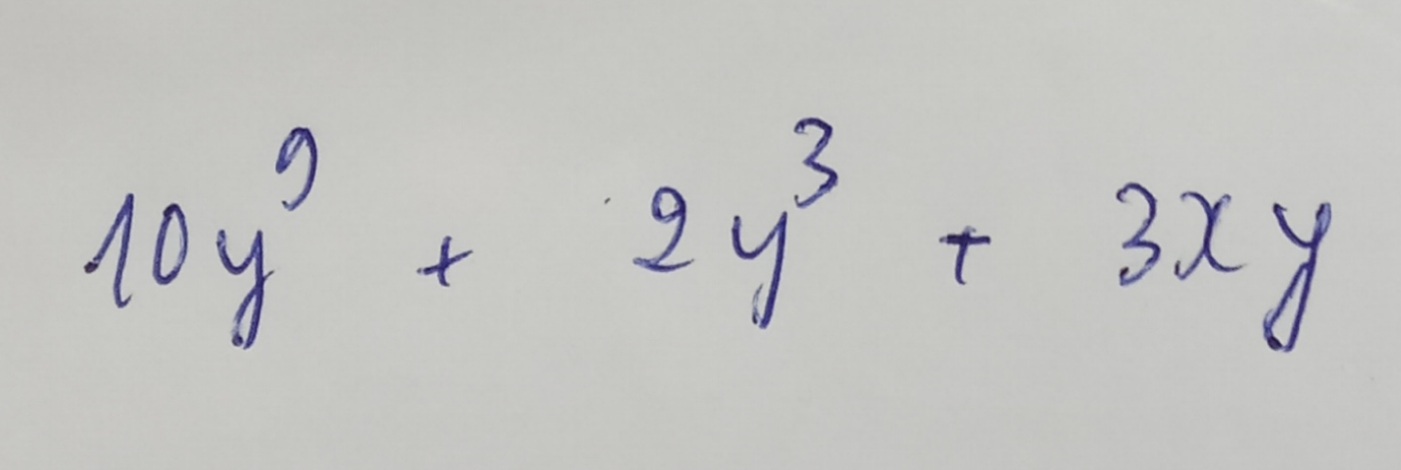 10y⁹ + 2y³ + 3xy